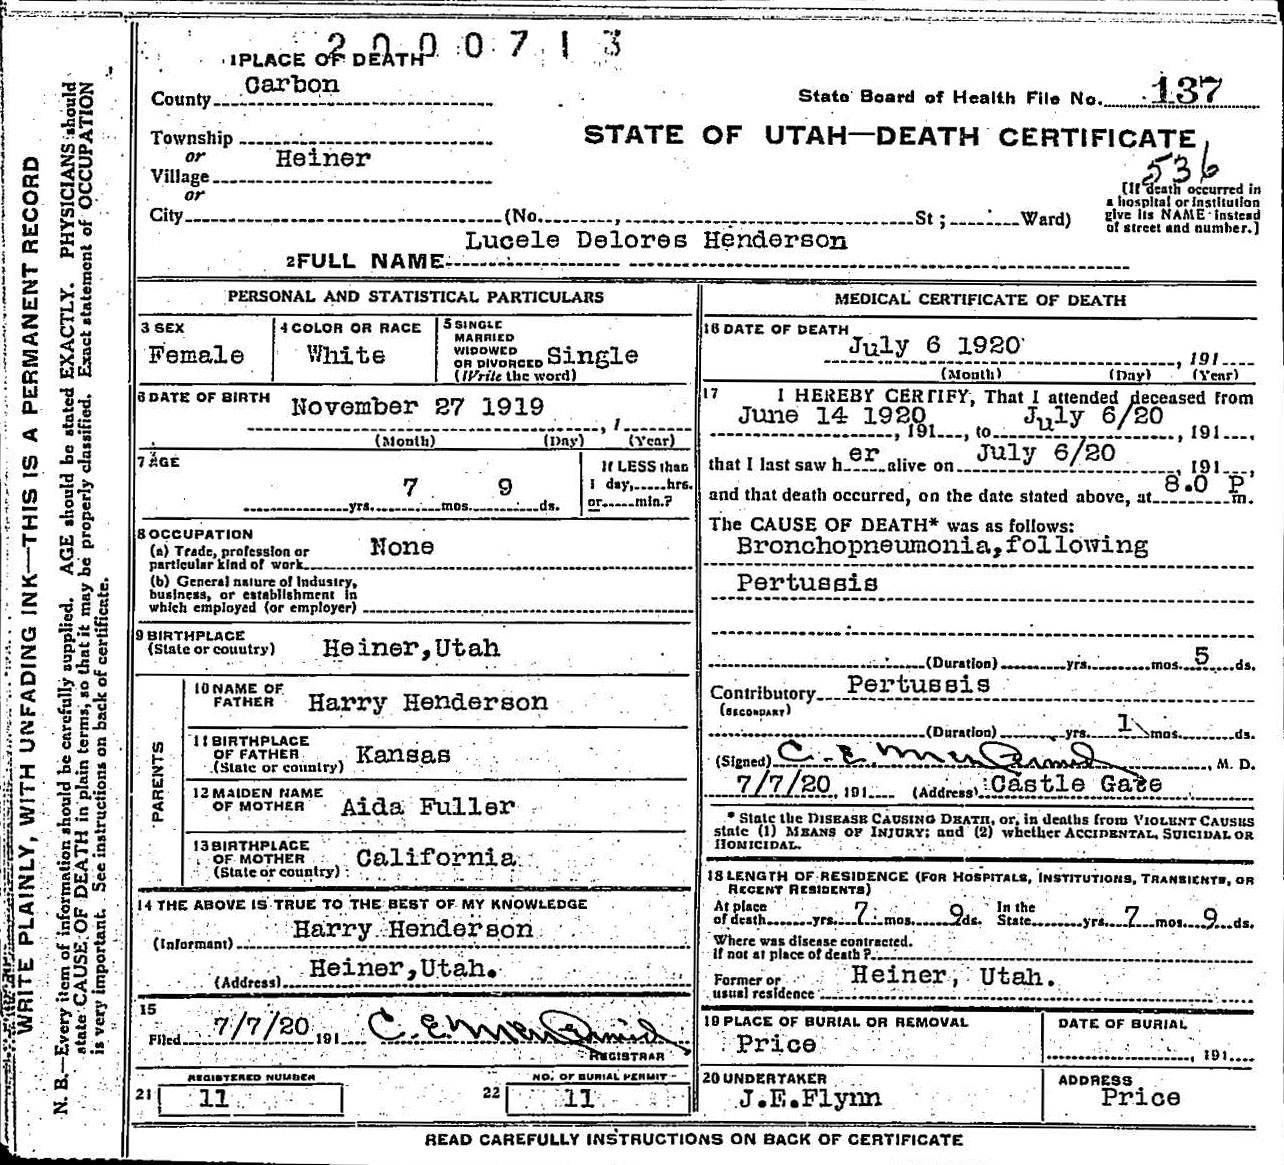 2000713
1 PLACE OF DEATH
County Carbon
State Board of Health File No. 137
STATE OF UTAH—DEATH CERTIFICATE
536
Township
or
Village Heiner
or
City (No. , St; Ward)
[If death occurred in
a hospital or institution
give its NAME instead
of street and number.]
2 FULL NAME Lucele Delores Henderson
PERSONAL AND STATISTICAL PARTICULARS
3 SEX
Female
4 COLOR OR RACE
White
5 SINGLE
MARRIED
WIDOWED
OR DIVORCED Single
(Write the word)
6 DATE OF BIRTH November 27 1919
, 1
(Month) (Day) (Year)
7 AGE
7 yrs. 9 mos. ds.
If LESS than
1 day, hrs.
or min.?
8 OCCUPATION
(a) Trade, profession or
particular kind of work None
(b) General nature of Industry,
business, or establishment in
which employed (or employer)
9 BIRTHPLACE
(State or country) Heiner,Utah
PARENTS
10 NAME OF
FATHER Harry Henderson
11 BIRTHPLACE
OF FATHER
(State or country) Kansas
12 MAIDEN NAME
OF MOTHER Aida Fuller
13 BIRTHPLACE
OF MOTHER
(State or country) California
14 THE ABOVE IS TRUE TO THE BEST OF MY KNOWLEDGE
(Informant) Harry Henderson
(Address) Heiner,Utah.
15
Filed 7/7/20 191 C. E. McDermid
REGISTRAR
REGISTERED NUMBER
21 11
NO. OF BURIAL PERMIT
22 11
MEDICAL CERTIFICATE OF DEATH
16 DATE OF DEATH
July 6 1920 , 191
(Month) (Day) (Year)
17 I HEREBY CERTIFY, That I attended deceased from
June 14 1920 , 191 , to July 6/20 , 191 ,
that I last saw her alive on July 6/20 , 191 ,
and that death occurred, on the date stated above, at 8.0 P m.
The CAUSE OF DEATH* was as follows:
Bronchopneumonia,following
Pertussis
(Duration) yrs. mos. 5 ds.
Contributory Pertussis
(SECONDARY)
(Duration) yrs. 1 mos. ds.
(Signed) C. E. McDermid , M. D.
7/7/20, 191 (Address) Castle Gate
* State the DISEASE CAUSING DEATH, or, in deaths from VIOLENT CAUSES
state (1) MEANS OF INJURY; and (2) whether ACCIDENTAL, SUICIDAL OR
HOMICIDAL.
18 LENGTH OF RESIDENCE (FOR HOSPITALS, INSTITUTIONS, TRANSIENTS, OR
RECENT RESIDENTS)
At place
of death yrs. 7 mos. 9 ds. In the
State yrs. 7 mos. 9 ds.
Where was disease contracted.
If not at place of death ?
Former or
usual residence Heiner, Utah.
19 PLACE OF BURIAL OR REMOVAL
Price
DATE OF BURIAL
, 191
20 UNDERTAKER
J.E.Flynn
ADDRESS
Price
READ CAREFULLY INSTRUCTIONS ON BACK OF CERTIFICATE
WRITE PLAINLY, WITH UNFADING INK—THIS IS A PERMANENT RECORD
N. B.—Every item of information should be carefully supplied. AGE should be stated EXACTLY. PHYSICIANS should
state CAUSE OF DEATH in plain terms, so that it may be properly classified. Exact statement of OCCUPATION
is very important. See instructions on back of certificate.